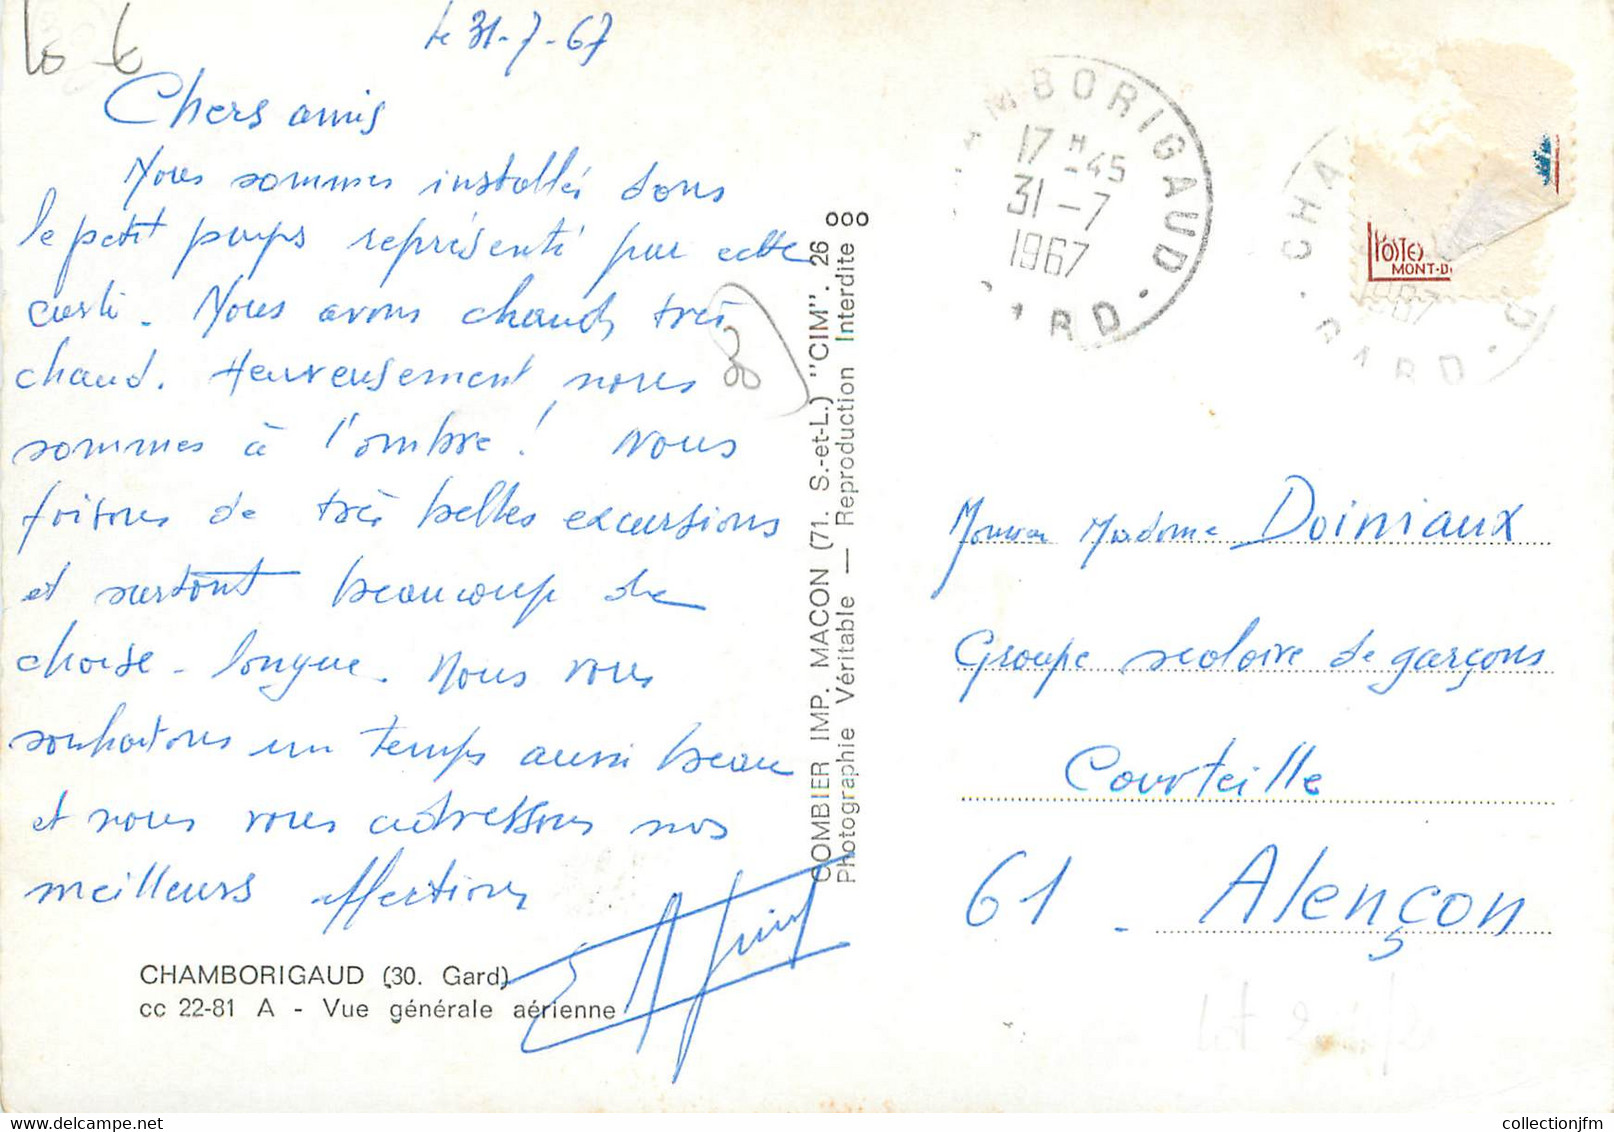 le 31-7-67
Chers amis
Nous sommes installés dans
le petit pays représenté par cette
carte. Nous avons chaud, très
chaud. Heureusement nous
sommes à l'ombre ! Nous
faisons de très belles excursions
et surtout beaucoup de
chaise-longue. Nous vous
souhaitons un temps aussi beau
et nous vous adressons nos
meilleurs affections
CHAMBORIGAUD (30. Gard)
cc 22-81 A - Vue générale aérienne
COMBIER IMP. MACON (71. S.-et-L.) "CIM". 26
Photographie Véritable — Reproduction Interdite
AMBORIGAUD
17 H -45
31 -7
1967
ARD
CHA
GARD
POSTES
MONT-D
Monsieur Madame Doiniaux
Groupe scolaire de garçons
Courteille
61 - Alençon
www.collectionjfm.com